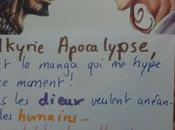 lkyrie Apocalypse,
t le manga qui me hype
ce moment!
s les dieux veulent anéan-
des humains-